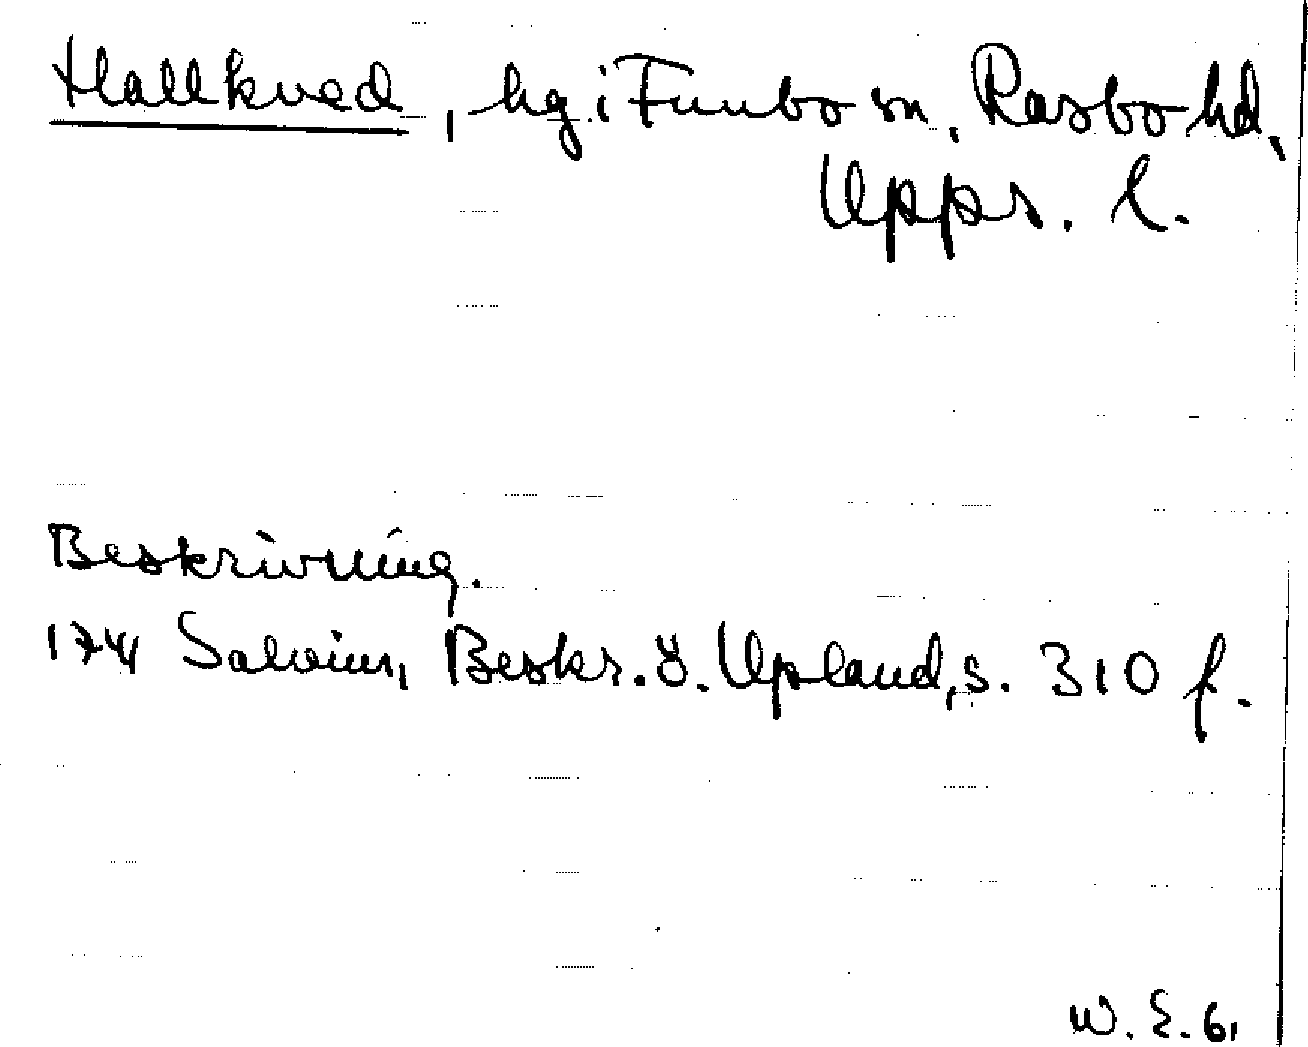 Hallkved, hg. i Funbo sn, Rasbo hd,
Upps. l.
Beskrivning.
1741 Salvius, Beskr. ö. Upland, s. 310 f.
W. E. 61